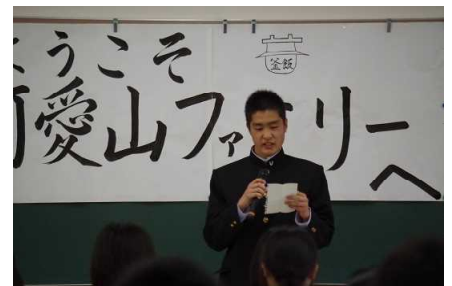 ようこそ
釜飯
愛山ファミリーへ